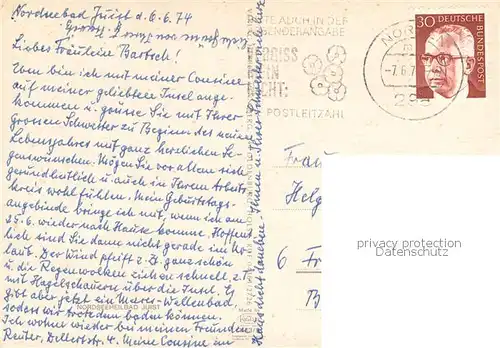 Nordseebad Juist d. 6.6.74
Liebes Fräulein Bartsch!
Nun bin ich mit meiner Cousine
auf meiner geliebten Insel ange-
kommen u. grüsse Sie mit Ihrer
grossen Schwester zu Beginn des neuen
Lebensjahres mit ganz herzlichen Se-
genswünschen. Mögen Sie vor allem sich
gesundheitlich u. auch in Ihrem Arbeits-
kreis wohl fühlen. Mein Geburtstags-
angebinde bringe ich mit, wenn ich am
25.6. wieder nach Hause komme. Hoffent-
lich sind Sie dann nicht gerade im Ur-
laub. Der Wind pfeift z.Z. ganz schön
u. die Regenwolken ziehen schnell, z.T.
mit Hagelschauern über die Insel. Es
gibt aber jetzt ein Meeres-Wellenbad,
sodass wir trotzdem baden können.
Ich wohne wieder bei meinen Freunden
Reuter, Dellertstr. 4. Meine Cousine im
Haus dicht daneben.
NORDSEEHEILBAD JUIST
AUCH IN DER
IN
POSTLEITZAHL
NOR
-7.6.7
30 DEUTSCHE BUNDESPOST
Frau
Helg
6 Fr
B
privacy protection
www.oldthing.de